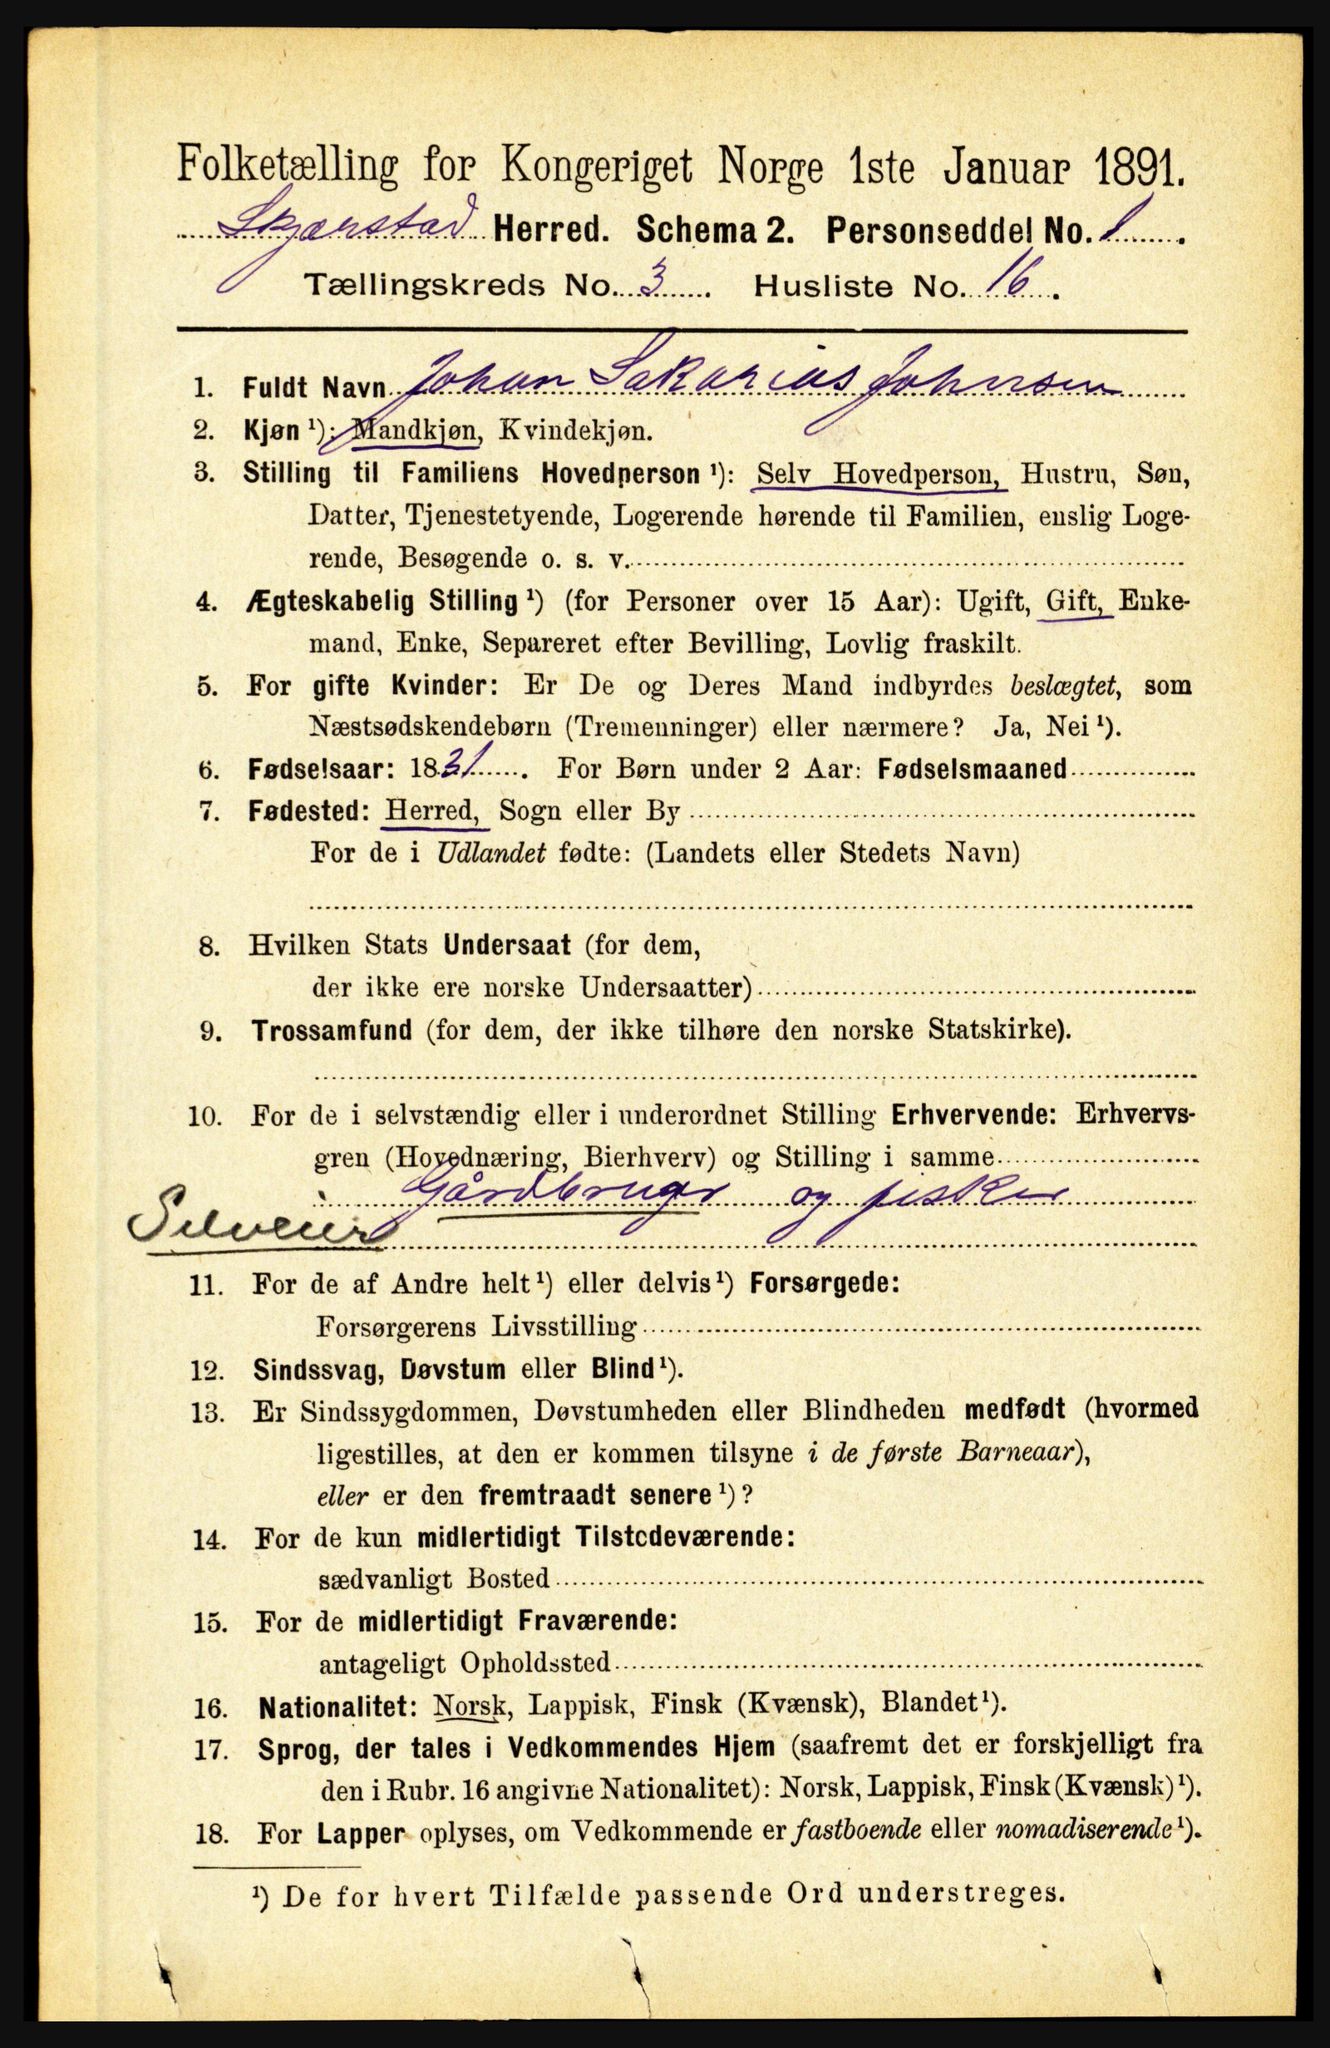 Folketælling for Kongeriget Norge 1ste Januar 1891.
Skjærstad Herred. Schema 2. Personseddel No. 1.
Tællingskreds No. 3. Husliste No. 16.
1. Fuldt Navn Johan Sakarias Johnsen
2. Kjøn ¹): Mandkjøn, Kvindekjøn.
3. Stilling til Familiens Hovedperson ¹): Selv Hovedperson, Hustru, Søn,
Datter, Tjenestetyende, Logerende hørende til Familien, enslig Loge-
rende, Besøgende o. s. v.
4. Ægteskabelig Stilling ¹) (for Personer over 15 Aar): Ugift, Gift, Enke-
mand, Enke, Separeret efter Bevilling, Lovlig fraskilt.
5. For gifte Kvinder: Er De og Deres Mand indbyrdes beslægtet, som
Næstsødskendebørn (Tremenninger) eller nærmere? Ja, Nei ¹).
6. Fødselsaar: 1831. For Børn under 2 Aar: Fødselsmaaned
7. Fødested: Herred, Sogn eller By
For de i Udlandet fødte: (Landets eller Stedets Navn)
8. Hvilken Stats Undersaat (for dem,
der ikke ere norske Undersaatter)
9. Trossamfund (for dem, der ikke tilhøre den norske Statskirke).
10. For de i selvstændig eller i underordnet Stilling Erhvervende: Erhvervs-
gren (Hovednæring, Bierhverv) og Stilling i samme
Gårdbruger og fisker
Selveier
11. For de af Andre helt ¹) eller delvis ¹) Forsørgede:
Forsørgerens Livsstilling
12. Sindssvag, Døvstum eller Blind ¹).
13. Er Sindssygdommen, Døvstumheden eller Blindheden medfødt (hvormed
ligestilles, at den er kommen tilsyne i de første Barneaar),
eller er den fremtraadt senere ¹)?
14. For de kun midlertidigt Tilstedeværende:
sædvanligt Bosted
15. For de midlertidigt Fraværende:
antageligt Opholdssted
16. Nationalitet: Norsk, Lappisk, Finsk (Kvænsk), Blandet ¹).
17. Sprog, der tales i Vedkommendes Hjem (saafremt det er forskjelligt fra
den i Rubr. 16 angivne Nationalitet): Norsk, Lappisk, Finsk (Kvænsk) ¹).
18. For Lapper oplyses, om Vedkommende er fastboende eller nomadiserende ¹).
¹) De for hvert Tilfælde passende Ord understreges.